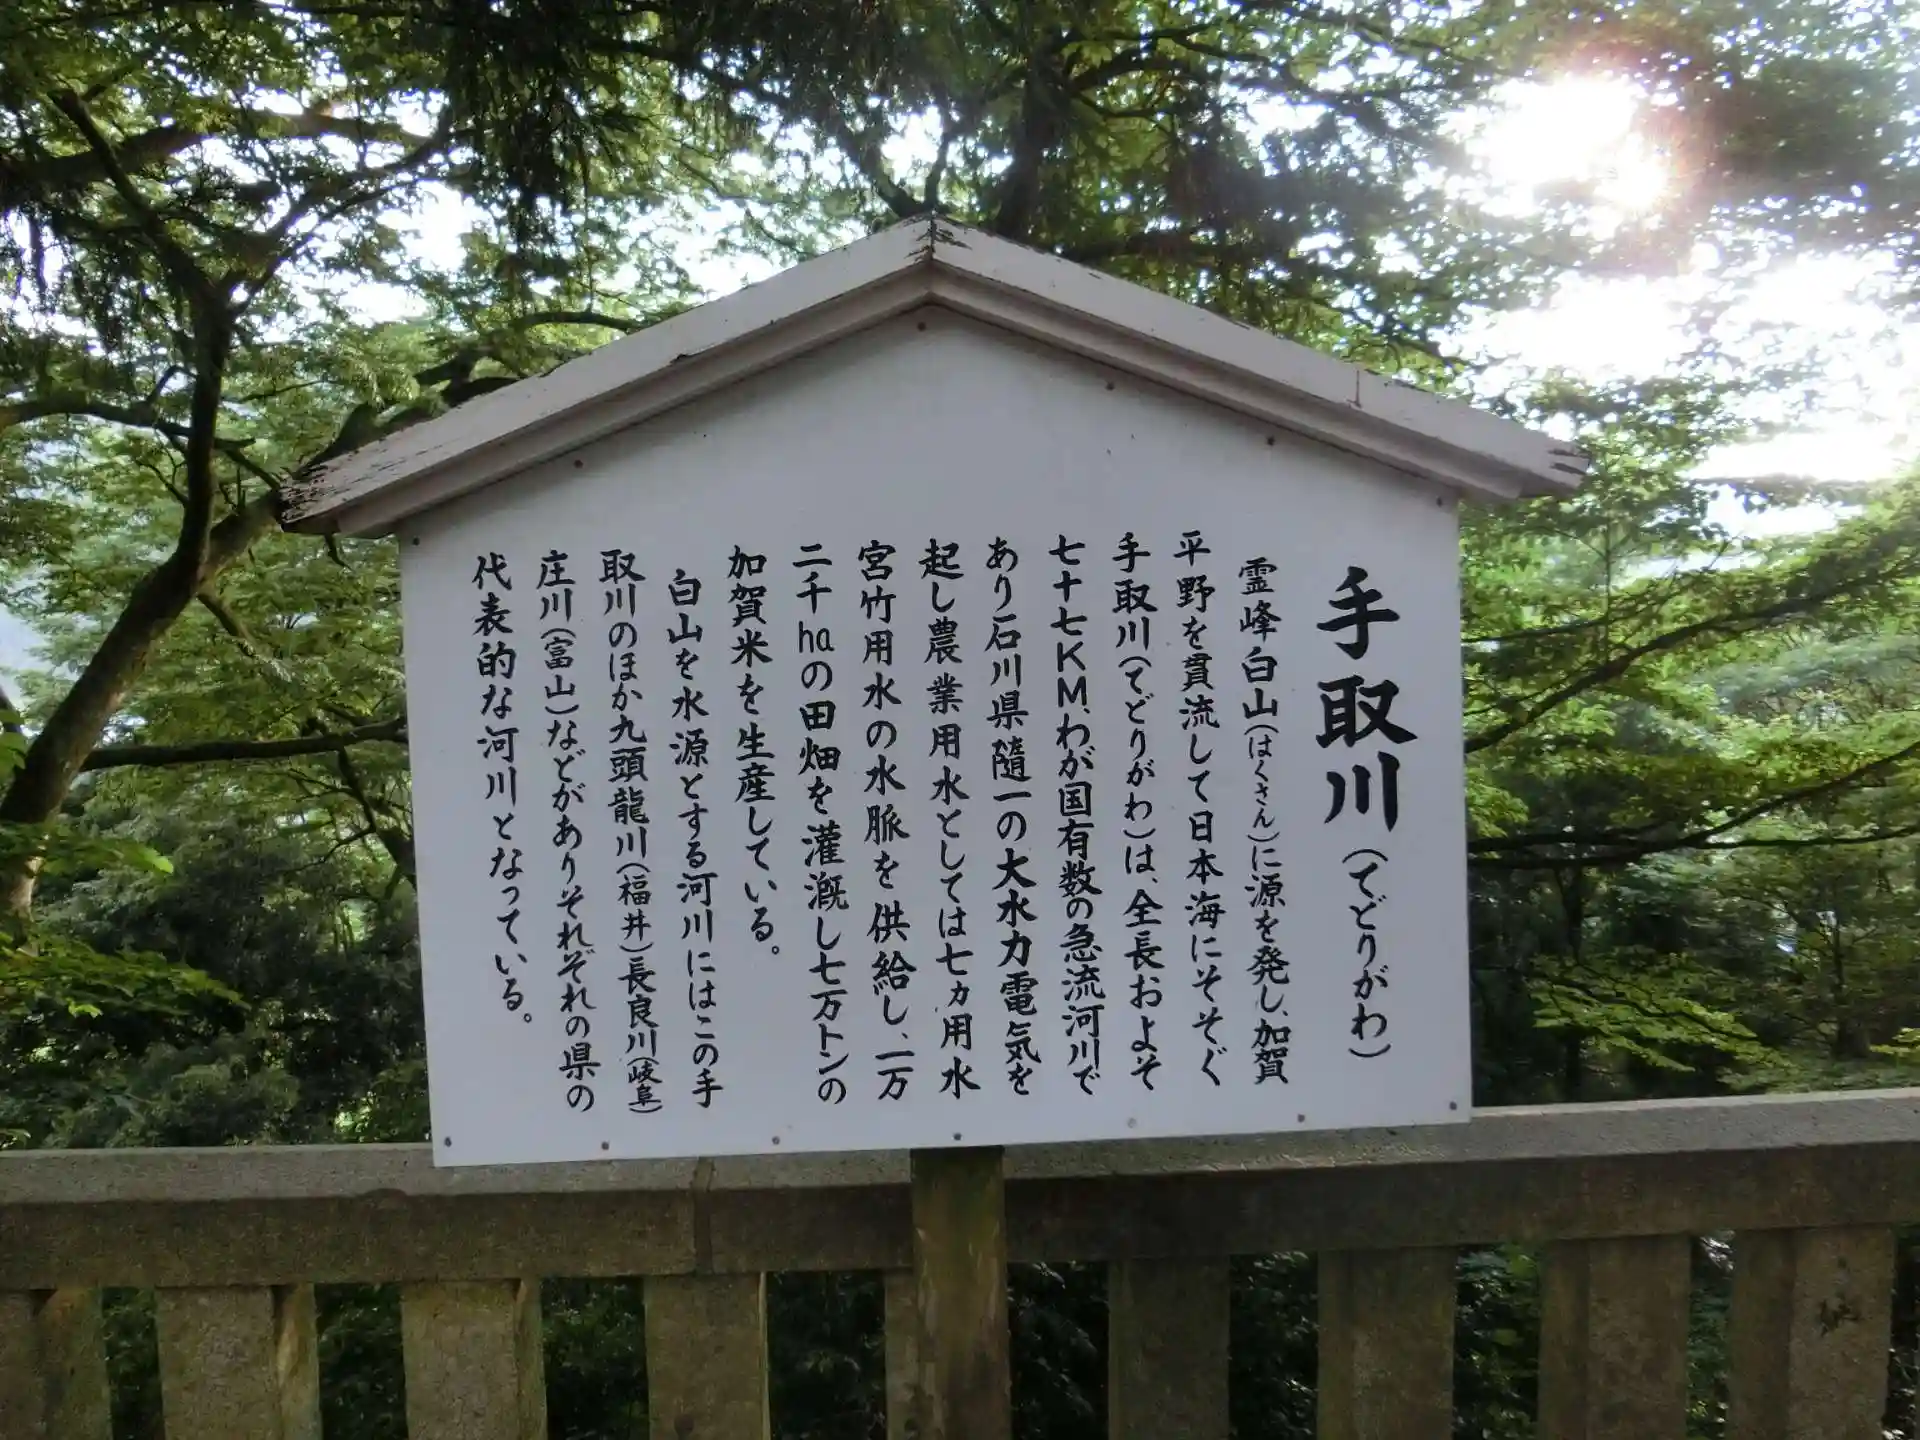 手取川（てどりがわ）
霊峰白山（はくさん）に源を発し、加賀
平野を貫流して日本海にそそぐ
手取川（てどりがわ）は、全長およそ
七十七KM、わが国有数の急流河川で
あり石川県随一の大水力電気を
起し農業用水としては七ヵ用水
宮竹用水の水脈を供給し、一万
二千haの田畑を灌漑し七万トンの
加賀米を生産している。
白山を水源とする河川にはこの手
取川のほか九頭龍川（福井）長良川（岐阜）
庄川（富山）などがありそれぞれの県の
代表的な河川となっている。